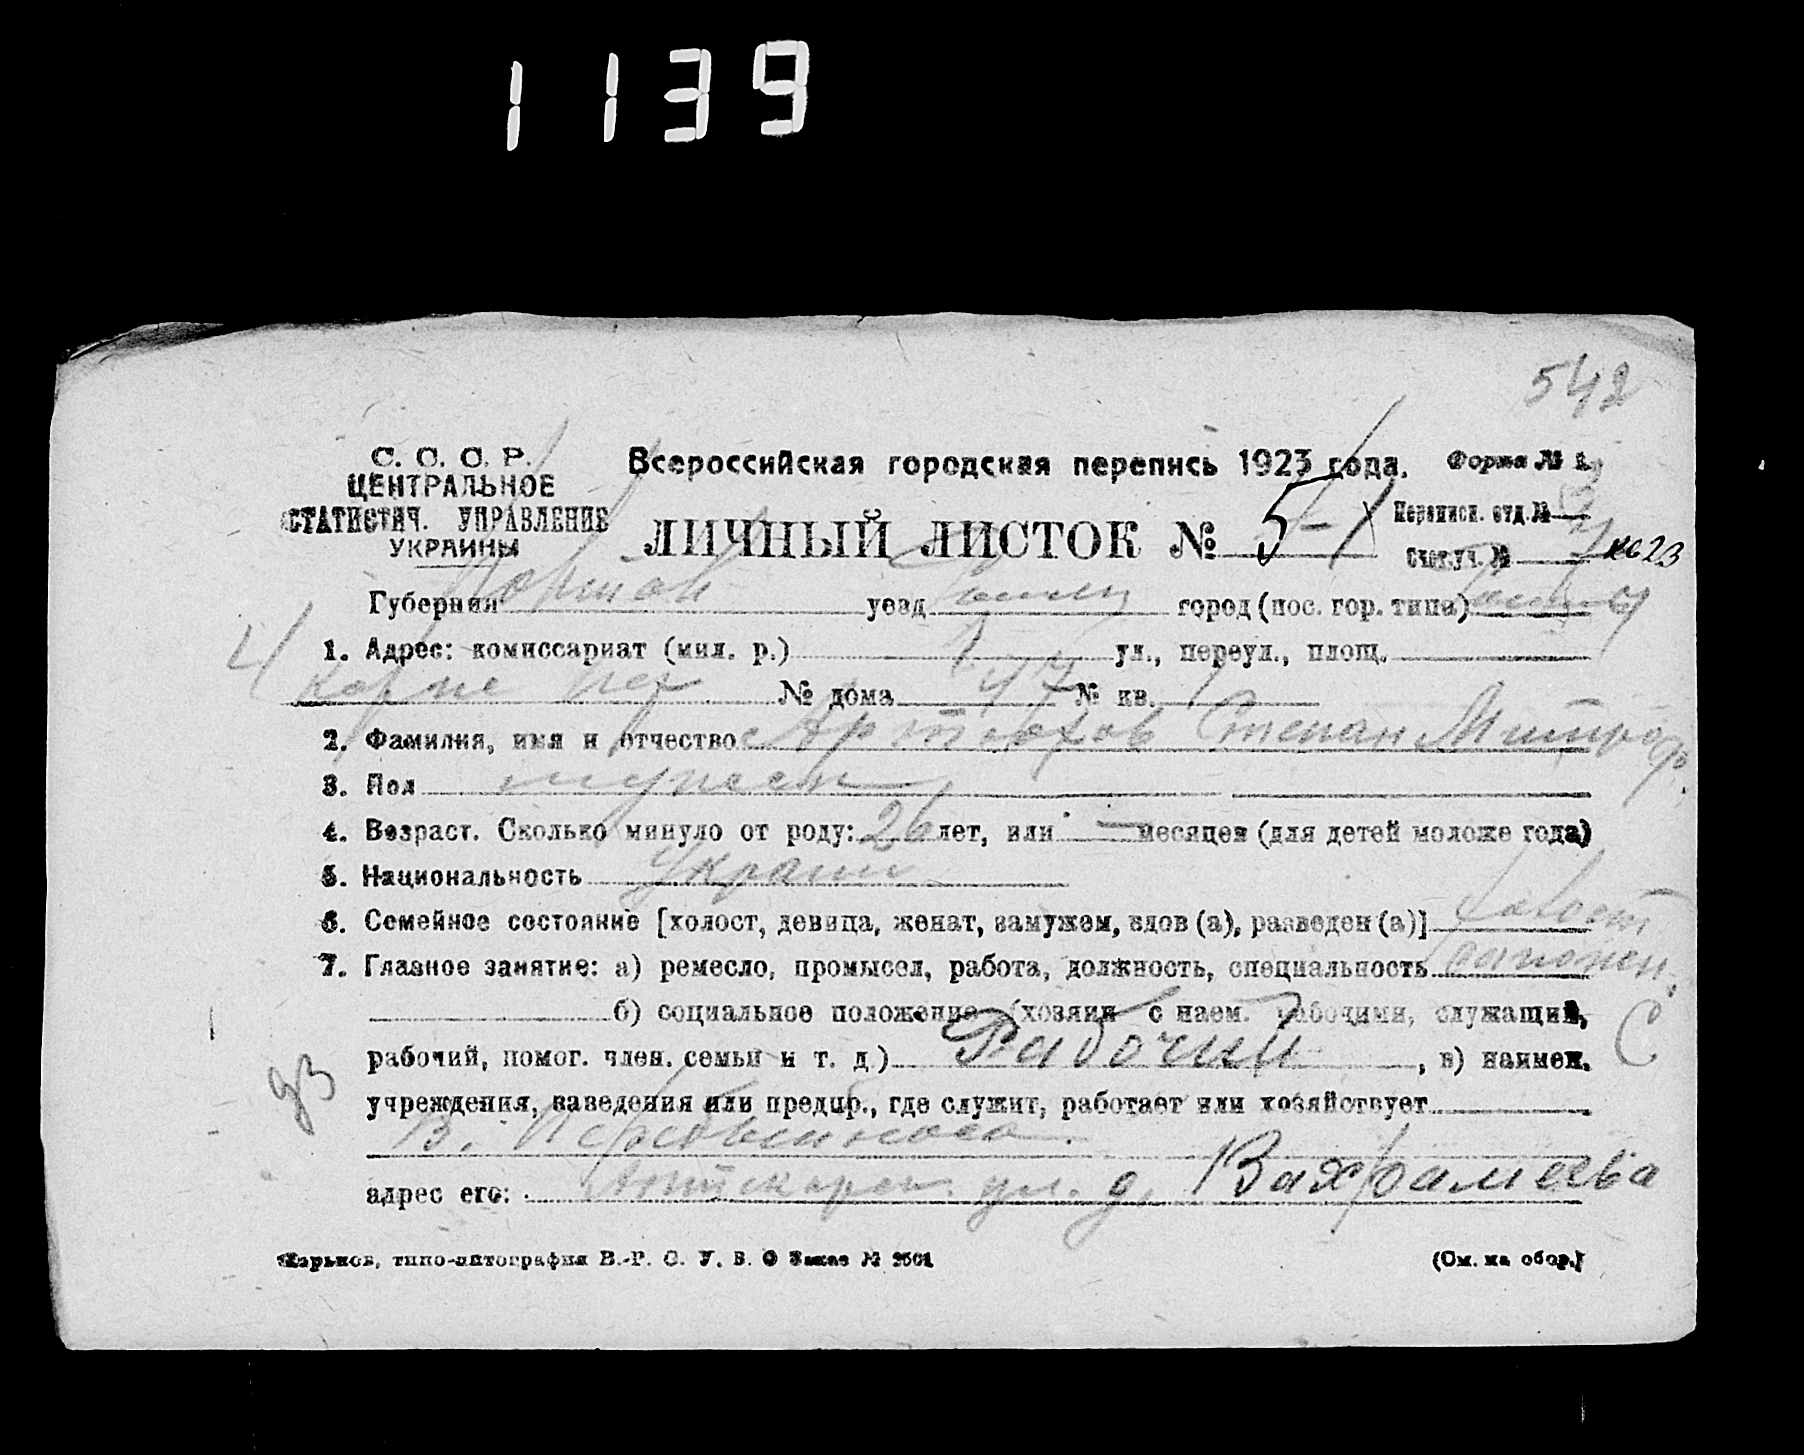 1139
542
С. С. С. Р.
ЦЕНТРАЛЬНОЕ
СТАТИСТИЧ. УПРАВЛЕНИЕ
УКРАИНЫ
Всероссийская городская перепись 1923 года.
Форма № 1.
ЛИЧНЫЙ ЛИСТОК № 5-1
Переписн. отд. №
Счет. уч. №
Губерния уезд город (пос. гор. типа)
4
1. Адрес: комиссариат (мил. р.) 1 ул., переул., площ.
№ дома 47 № кв. 1
2. Фамилия, имя и отчество Артюхов Степан Митроф.
3. Пол мужеск
4. Возраст. Сколько минуло от роду: 26 лет, или — месяцев (для детей моложе года)
5. Национальность Украин
6. Семейное состояние [холост, девица, женат, замужем, вдов (а), разведен (а)] холост
7. Главное занятие: а) ремесло, промысел, работа, должность, специальность
б) социальное положение (хозяин с наем. рабочими, служащий,
С
рабочий, помог. член. семьи и т. д.) Рабочий, в) наимен.
учреждения, заведения или предпр., где служит, работает или хозяйствует
В.
адрес его: Аптекарск. ул. д. Вахрамеева
Харьков, типо-литография В.-Р. С. У. В. О Заказ № 2501
(См. на обор.)